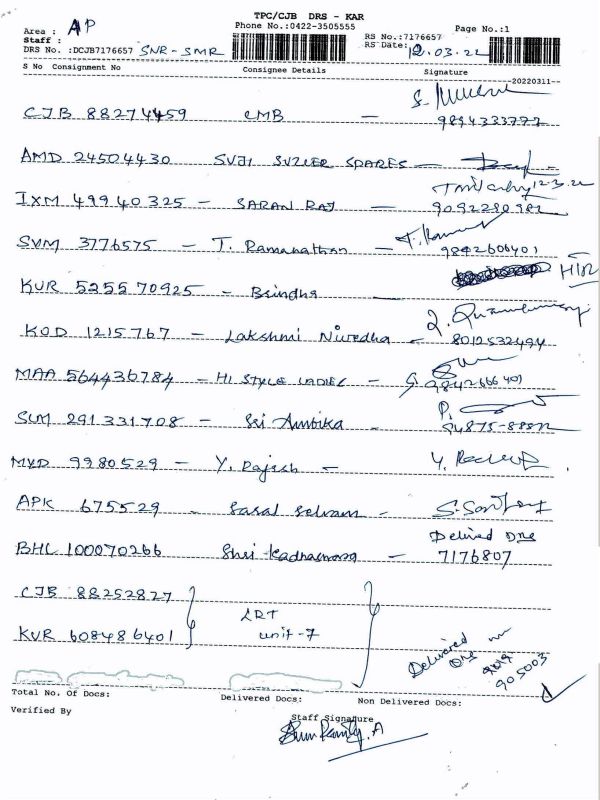 TPC/CJB DRS - KAR
Phone No.:0422-3505555
Area : AP
Staff :
DRS No. :DCJB7176657 SNR-SMR
RS No.:7176657
RS Date: 12.03.22
Page No.:1
S No Consignment No Consignee Details Signature
20220311
CJB 88274459 CMB — 9894333777
AMD 24504430 SUJI SUZLER SPARES —
IXM 49940325 - SARAN RAJ — 12-3-22
9092280982
SVM 3776575 - T. Ramanathan —
9842606401
KUR 525570925 - Brindha
KOD 1215767 - Lakshmi Nivedha -
8012532494
MAA 564436784 - HI STYLE LADIES -
9842666401
SLM 291331708 - Sri Ambika
94875-88872
MYD 9980529 - Y. Rajesh -
APK 675529 -
BHL 100070266 Shri —
Delived DRS
7176807
CJB 88252827
LRT
unit-7
KUR 608486401
Delivered
905003
Total No. Of Docs: Delivered Docs: Non Delivered Docs:
Verified By Staff Signature